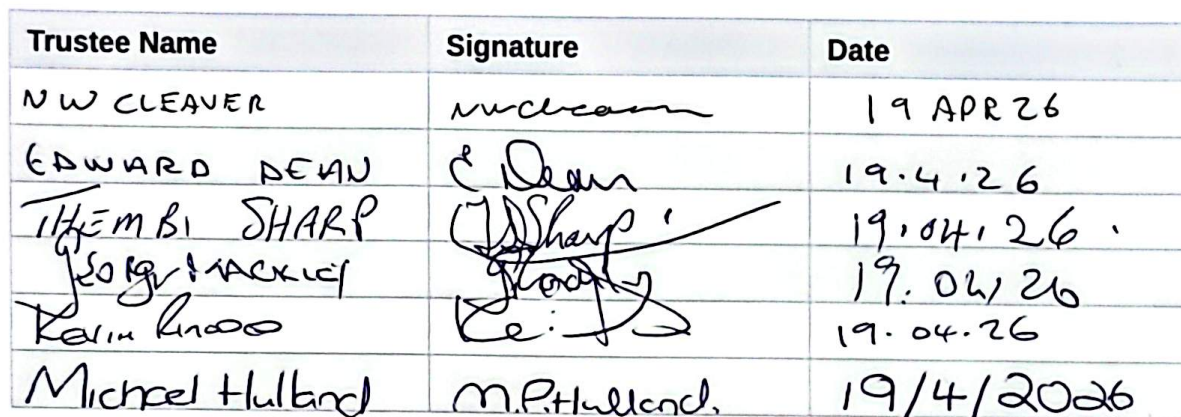 Trustee Name Signature Date
N W CLEAVER 19 APR 26
EDWARD DEAN E Dean 19.4.26
THEMBI SHARP Sharp 19.04.26
19.04.26
Kevin 19.04.26
Michael Hulland M.P.Hulland. 19/4/2026